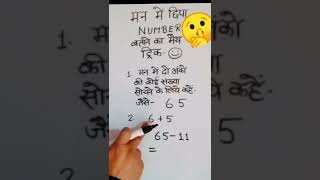 मन में छिपा
NUMBER
बताने का मैथ
ट्रिक-
1. मन में दो अंको
की कोई संख्या
सोचने के लिये कहें.
जैसे- 65
2. 6+5
65-11
=